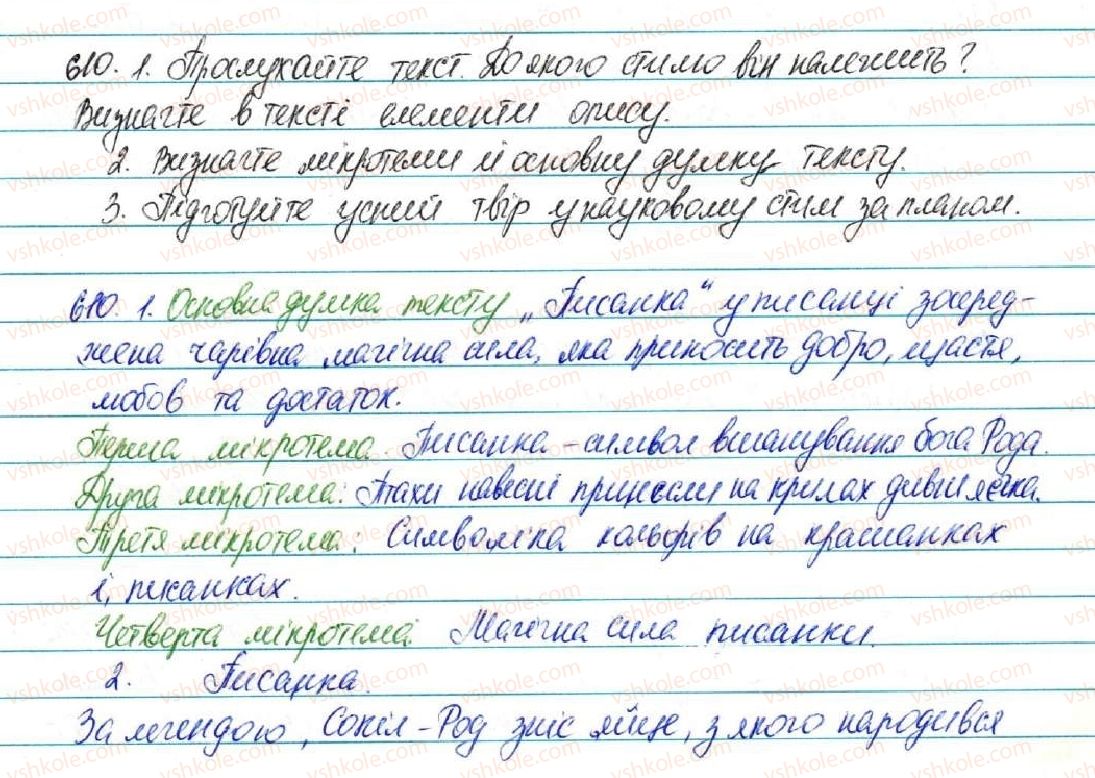 610. 1. Прослухайте текст. До якого стилю він належить?
Визначте в тексті елементи опису.
2. Визначте мікротеми й основну думку тексту.
3. Підготуйте усний твір у науковому стилі за планом.
610. 1. Основна думка тексту „Писанка" у писанці зосеред-
жена чарівна магічна сила, яка приносить добро, щастя,
любов та достаток.
Перша мікротема. Писанка - символ вшанування бога Рода.
Друга мікротема: Птахи навесні принесли на крилах дивні яєчка.
Третя мікротема: Символіка кольорів на крашанках
і, писанках.
Четверта мікротема. Магічна сила писанки.
2. Писанка.
За легендою, Сокіл-Род зніс яйце, з якого народився